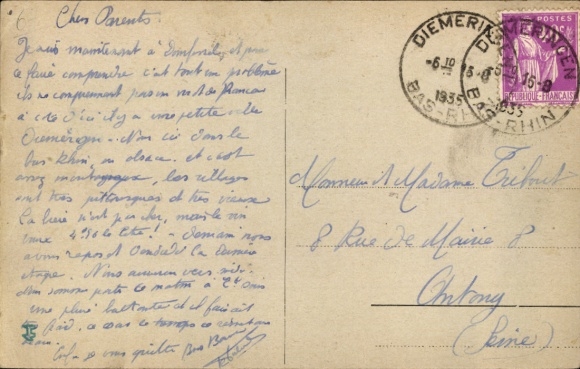 6
Chers Parents
Je suis maintenant à et pour
se faire comprendre c'est tout un problème
ils ne comprennent pas un mot de français
à côté d'ici il y a une petite ville
Diemeringen. Nous ici dans le
Bas Rhin, en alsace. et c'est
assez montagneux, les villages
sont très pittoresques et très vieux
La bière n'est pas cher, mais le vin
4.50 le litre! - demain nous
avons repos et Vendredi la dernière
étape. Nous arrivons vers midi.
sommes partis ce matin à
une pluie battante et il faisait
froid.
vous quitte Bons Baisers
DIEMERINGEN
6 10 15-0
1935
BAS-RHIN
DIEMERINGEN
15-0
1935
BAS-RHIN
POSTES
REPUBLIQUE FRANÇAISE
Monsieur et Madame Tribout
8 Rue de Mairie 8
Antony
(Seine)